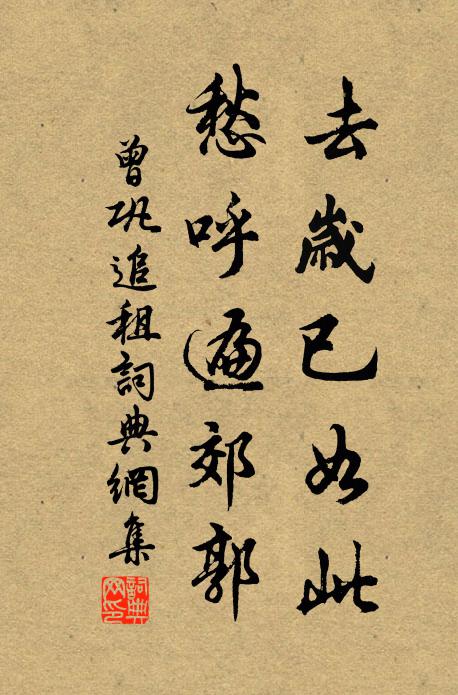 去歲已如此
愁呼遍郊郭
曾巩追租詞典網集
詞典
网印